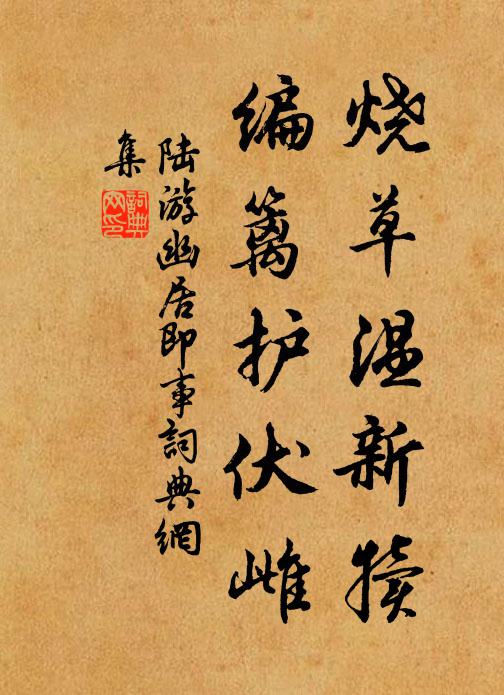 烧草温新犊
编篱护伏雌
陆游幽居即事詞典網
集
詞典
网印